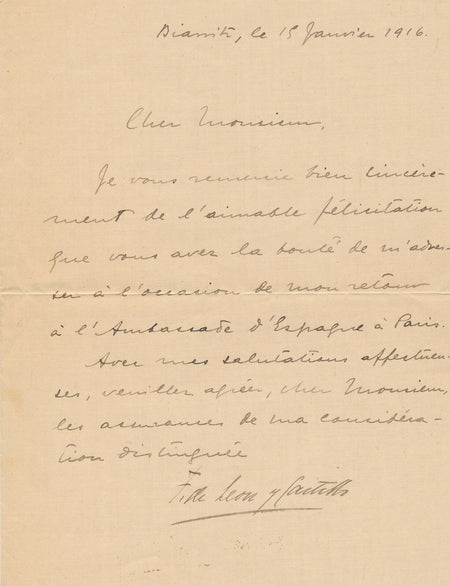 Biarritz, le 15 Janvier 1916.
Cher Monsieur,
Je vous remercie bien sincère-
ment de l'aimable félicitation
que vous avez la bonté de m'adres-
ser à l'occasion de mon retour
à l'Ambassade d'Espagne à Paris.
Avec mes salutations affectueu-
ses, veuillez agréer, cher Monsieur,
les assurances de ma considéra-
tion distinguée
F. de Leon y Castillo